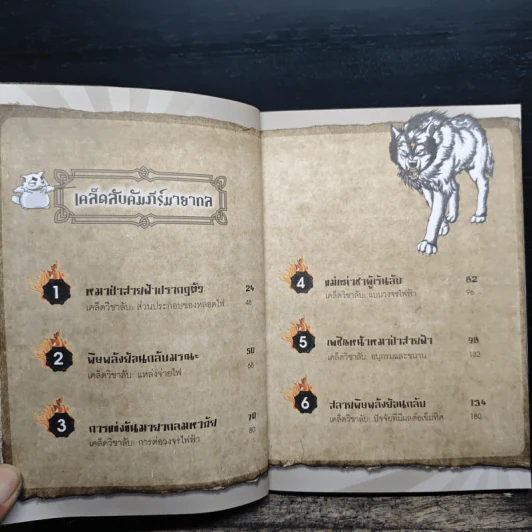 เคล็ดลับคัมภีร์มายากล
1 หมาป่าสายฟ้าปรากฏตัว 24
เคล็ดวิชาลับ: ส่วนประกอบของหลอดไฟ 48
2 พิษพลังย้อนกลับมรณะ 50
เคล็ดวิชาลับ: แหล่งจ่ายไฟ 68
3 การแข่งขันมายากลมหาภัย 70
เคล็ดวิชาลับ: การต่อวงจรไฟฟ้า 80
4 แม่เฒ่าชาผู้เร้นลับ 82
เคล็ดวิชาลับ: แบบวงจรไฟฟ้า 96
5 เผชิญหน้าหมาป่าสายฟ้า 98
เคล็ดวิชาลับ: อนุกรมและขนาน 132
6 สลายพิษพลังย้อนกลับ 134
เคล็ดวิชาลับ: ปัจจัยที่มีผลต่อเข็มทิศ 180